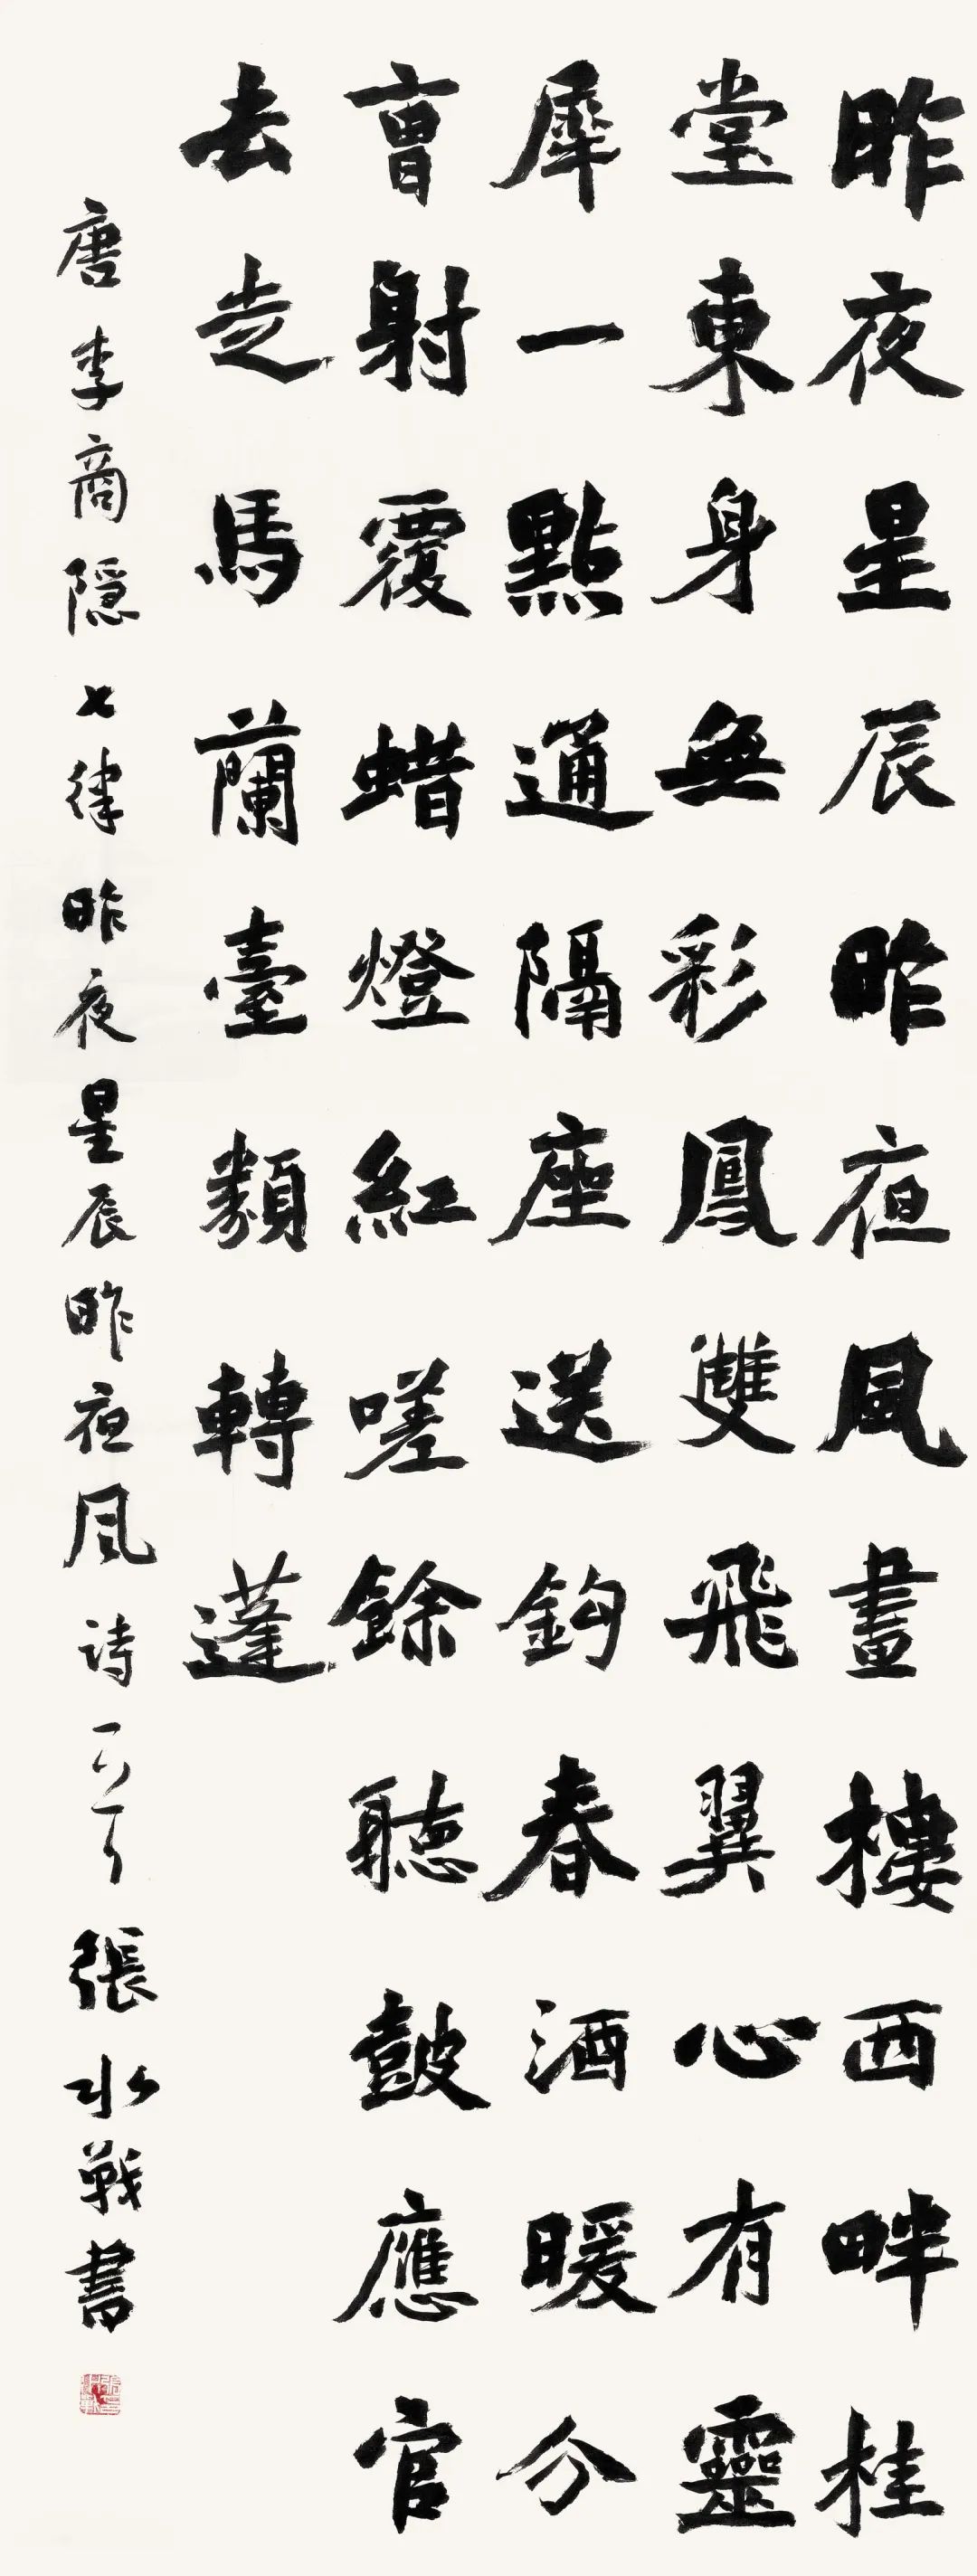 昨夜星辰昨夜風畫樓西畔桂
堂東身無彩鳳雙飛翼心有靈
犀一點通隔座送鈎春酒暖分
曹射覆蜡燈紅嗟餘聽鼓應官
去走馬蘭臺類轉蓬
唐李商隱七律昨夜星辰昨夜風詩一首張水戰書